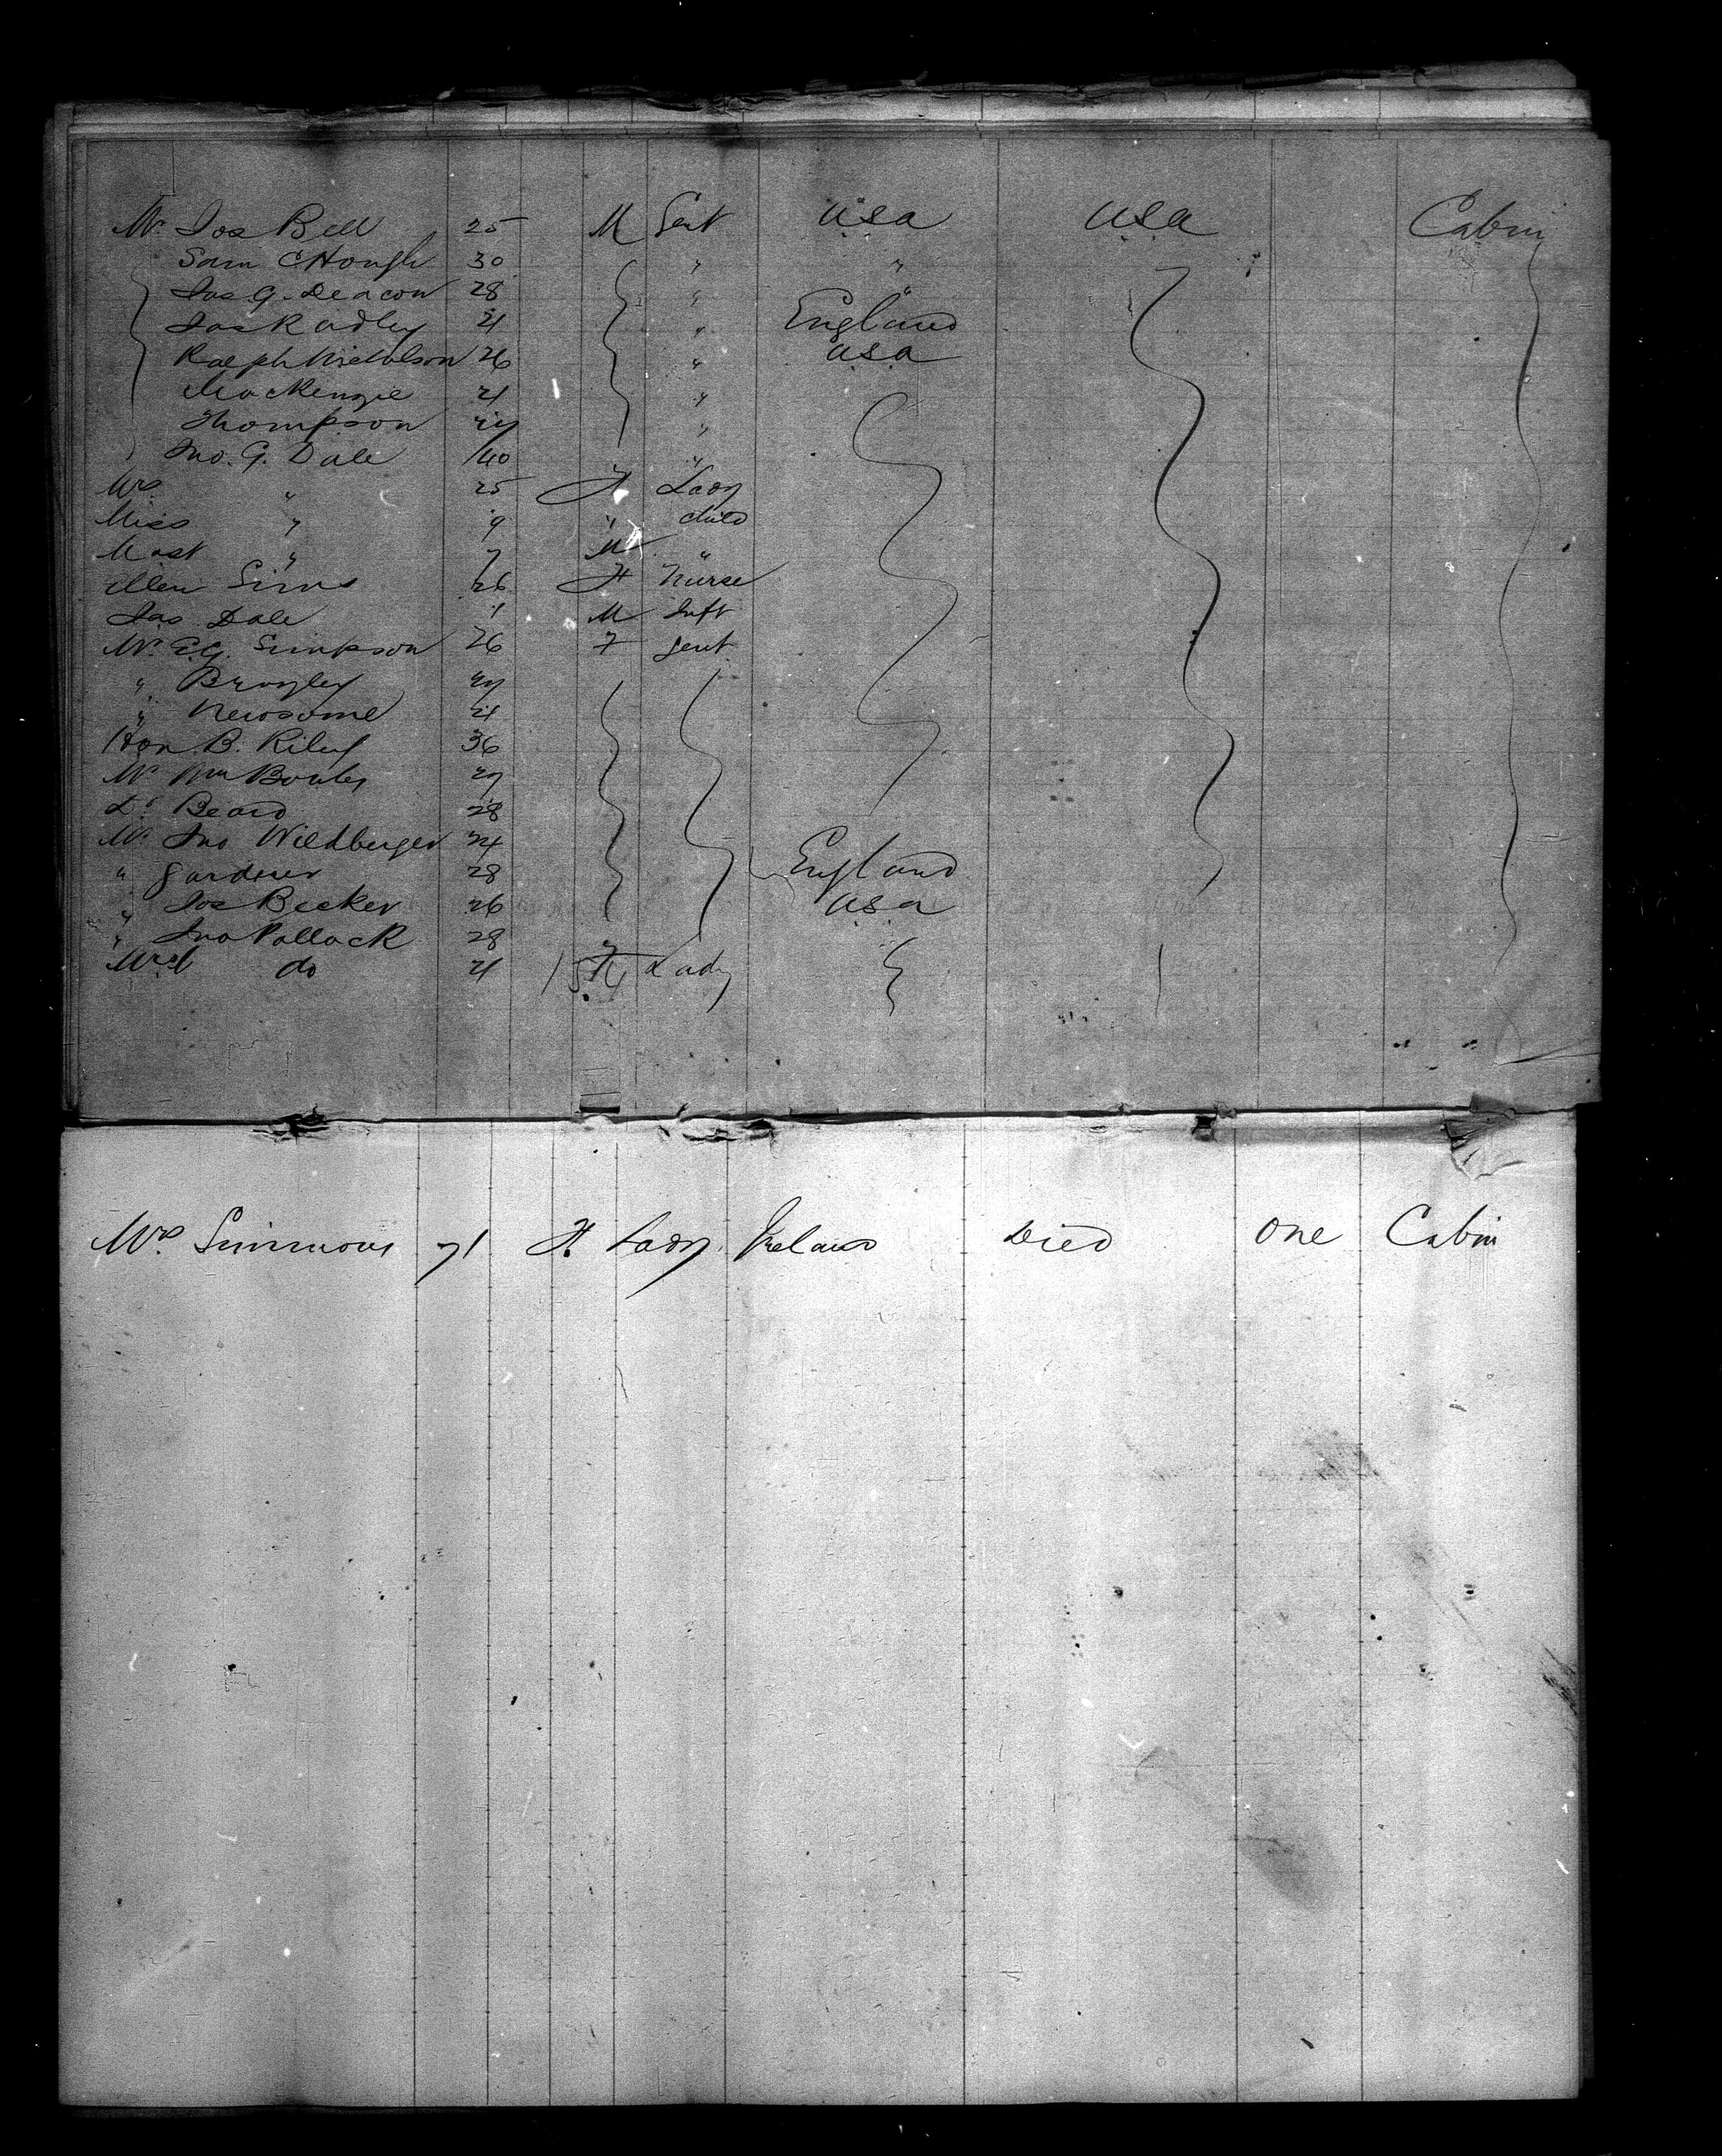 Mr. Jos Bell 25 M Gent U.S.A U.S.A Cabin
Sam C Hough 30 " "
Jas. G. Deacon 28 " "
Jas Radley 21 " England
Ralph Nicholson 26 " U.S.A
MacKenzie 21 "
Thompson "
Jno. G. Dale 40 "
Mrs. " 25 F Lady
Miss " 9 " Child
Mast " 7 M "
Ellen Sims 26 F Nurse
Jas Dale 1 M Inft
Mr. E.G. Simpson 26 F Gent
"
" Newsome 21
Hon. B. Riley 36
Mr Wm
Dr Beard 28
Mr. Jno Wildberger 24
" Gardner 28 England
" Jos Becker 26 U.S.A
" Jno Pollock 28
Mrs do 21 F Lady
Mrs. Simmons 71 F. Lady Ireland Died One Cabin